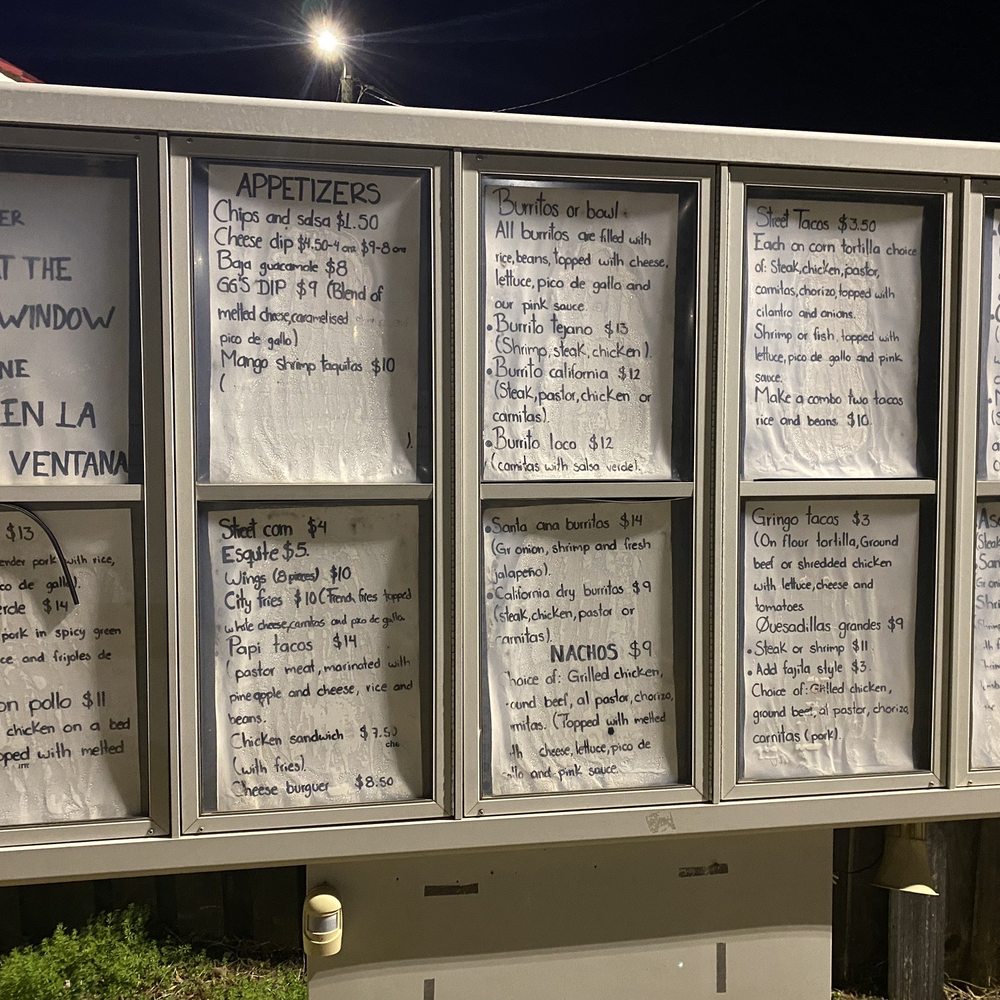 ER
T THE
WINDOW
NE
EN LA
VENTANA
$13
ender pork with rice,
co de gallo).
erde $14
pork in spicy green
ce and frijoles de
on pollo $11
chicken on a bed
pped with melted
APPETIZERS
Chips and salsa $1.50
Cheese dip $4.50-4 onz $9-8 onz
Baja guacamole $8
GG'S DIP $9 (Blend of
melted chese,caramelised
pico de gallo)
Mango shrimp taquitos $10
(
).
Street corn $4
Esquite $5.
Wings (8 pieces) $10
City fries $10 (French fries topped
white cheese,carnitas and pico de gallo.
Papi tacos $14
(pastor meat, marinated with
pineapple and cheese, rice and
beans.
Chicken sandwich $7.50
(with fries).
Cheese burguer $8.50
Burritos or bowl.
All burritos are filled with
rice,beans,topped with cheese,
lettuce,pico de gallo and
our pink sauce.
•Burrito tejano $13
(Shrimp, steak, chicken).
•Burrito california $12
(Steak,pastor,chicken or
carnitas).
•Burrito loco $12
(carnitas with salsa verde).
•Santa ana burritos $14
(Gr onion, shrimp and fresh
jalapeño).
•California dry burritos $9
(steak,chicken,pastor or
carnitas).
NACHOS $9
hoice of: Grilled chicken,
ound beef, al pastor, chorizo,
rnitas. (Topped with melted
th cheese,lettuce,pico de
llo and pink sauce.
Street Tacos $3.50
Each on corn tortilla choice
of: Steak,chicken,pastor,
carnitas,chorizo,topped with
cilantro and onions.
Shrimp or fish, topped with
lettuce,pico de gallo and pink
sauce.
Make a combo two tacos
rice and beans $10.
Gringo tacos $3
(On flour tortilla,Ground
beef or shredded chicken
with lettuce,cheese and
tomatoes
Quesadillas grandes $9
•Steak or shrimp $11
•Add fajita style $3.
Choice of: Grilled chicken,
ground beef, al pastor, chorizo,
carnitas (pork).
As
Steak
San
Gr on
Shr